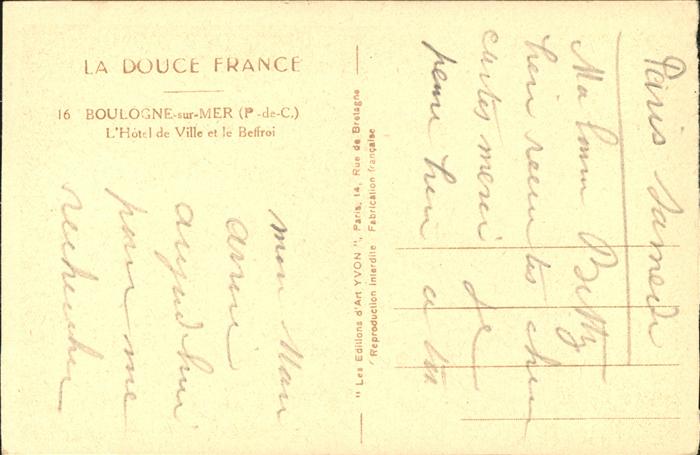 LA DOUCE FRANCE
16 BOULOGNE-sur-MER (P-de-C.)
L'Hôtel de Ville et le Beffroi
" Les Editions d'Art YVON ", Paris, 14, Rue de Bretagne
Reproduction interdite Fabrication française
Paris Samedi
Ma bonne Betty
bien reçu tes
cartes merci Je
pense bien a toi
mon Mari
arrive
aujourd'hui
pour me
rechercher